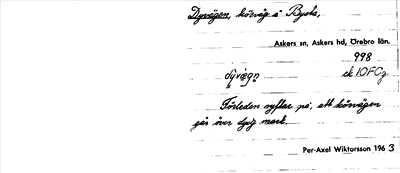 Dyvägen, körväg i Bysta,
Askers sn, Askers hd, Örebro län.
998
dyvägn ek 10FCg
Förleden syftar på, att körvägen
går över dyig mark.
Per-Axel Wiktorsson 1963